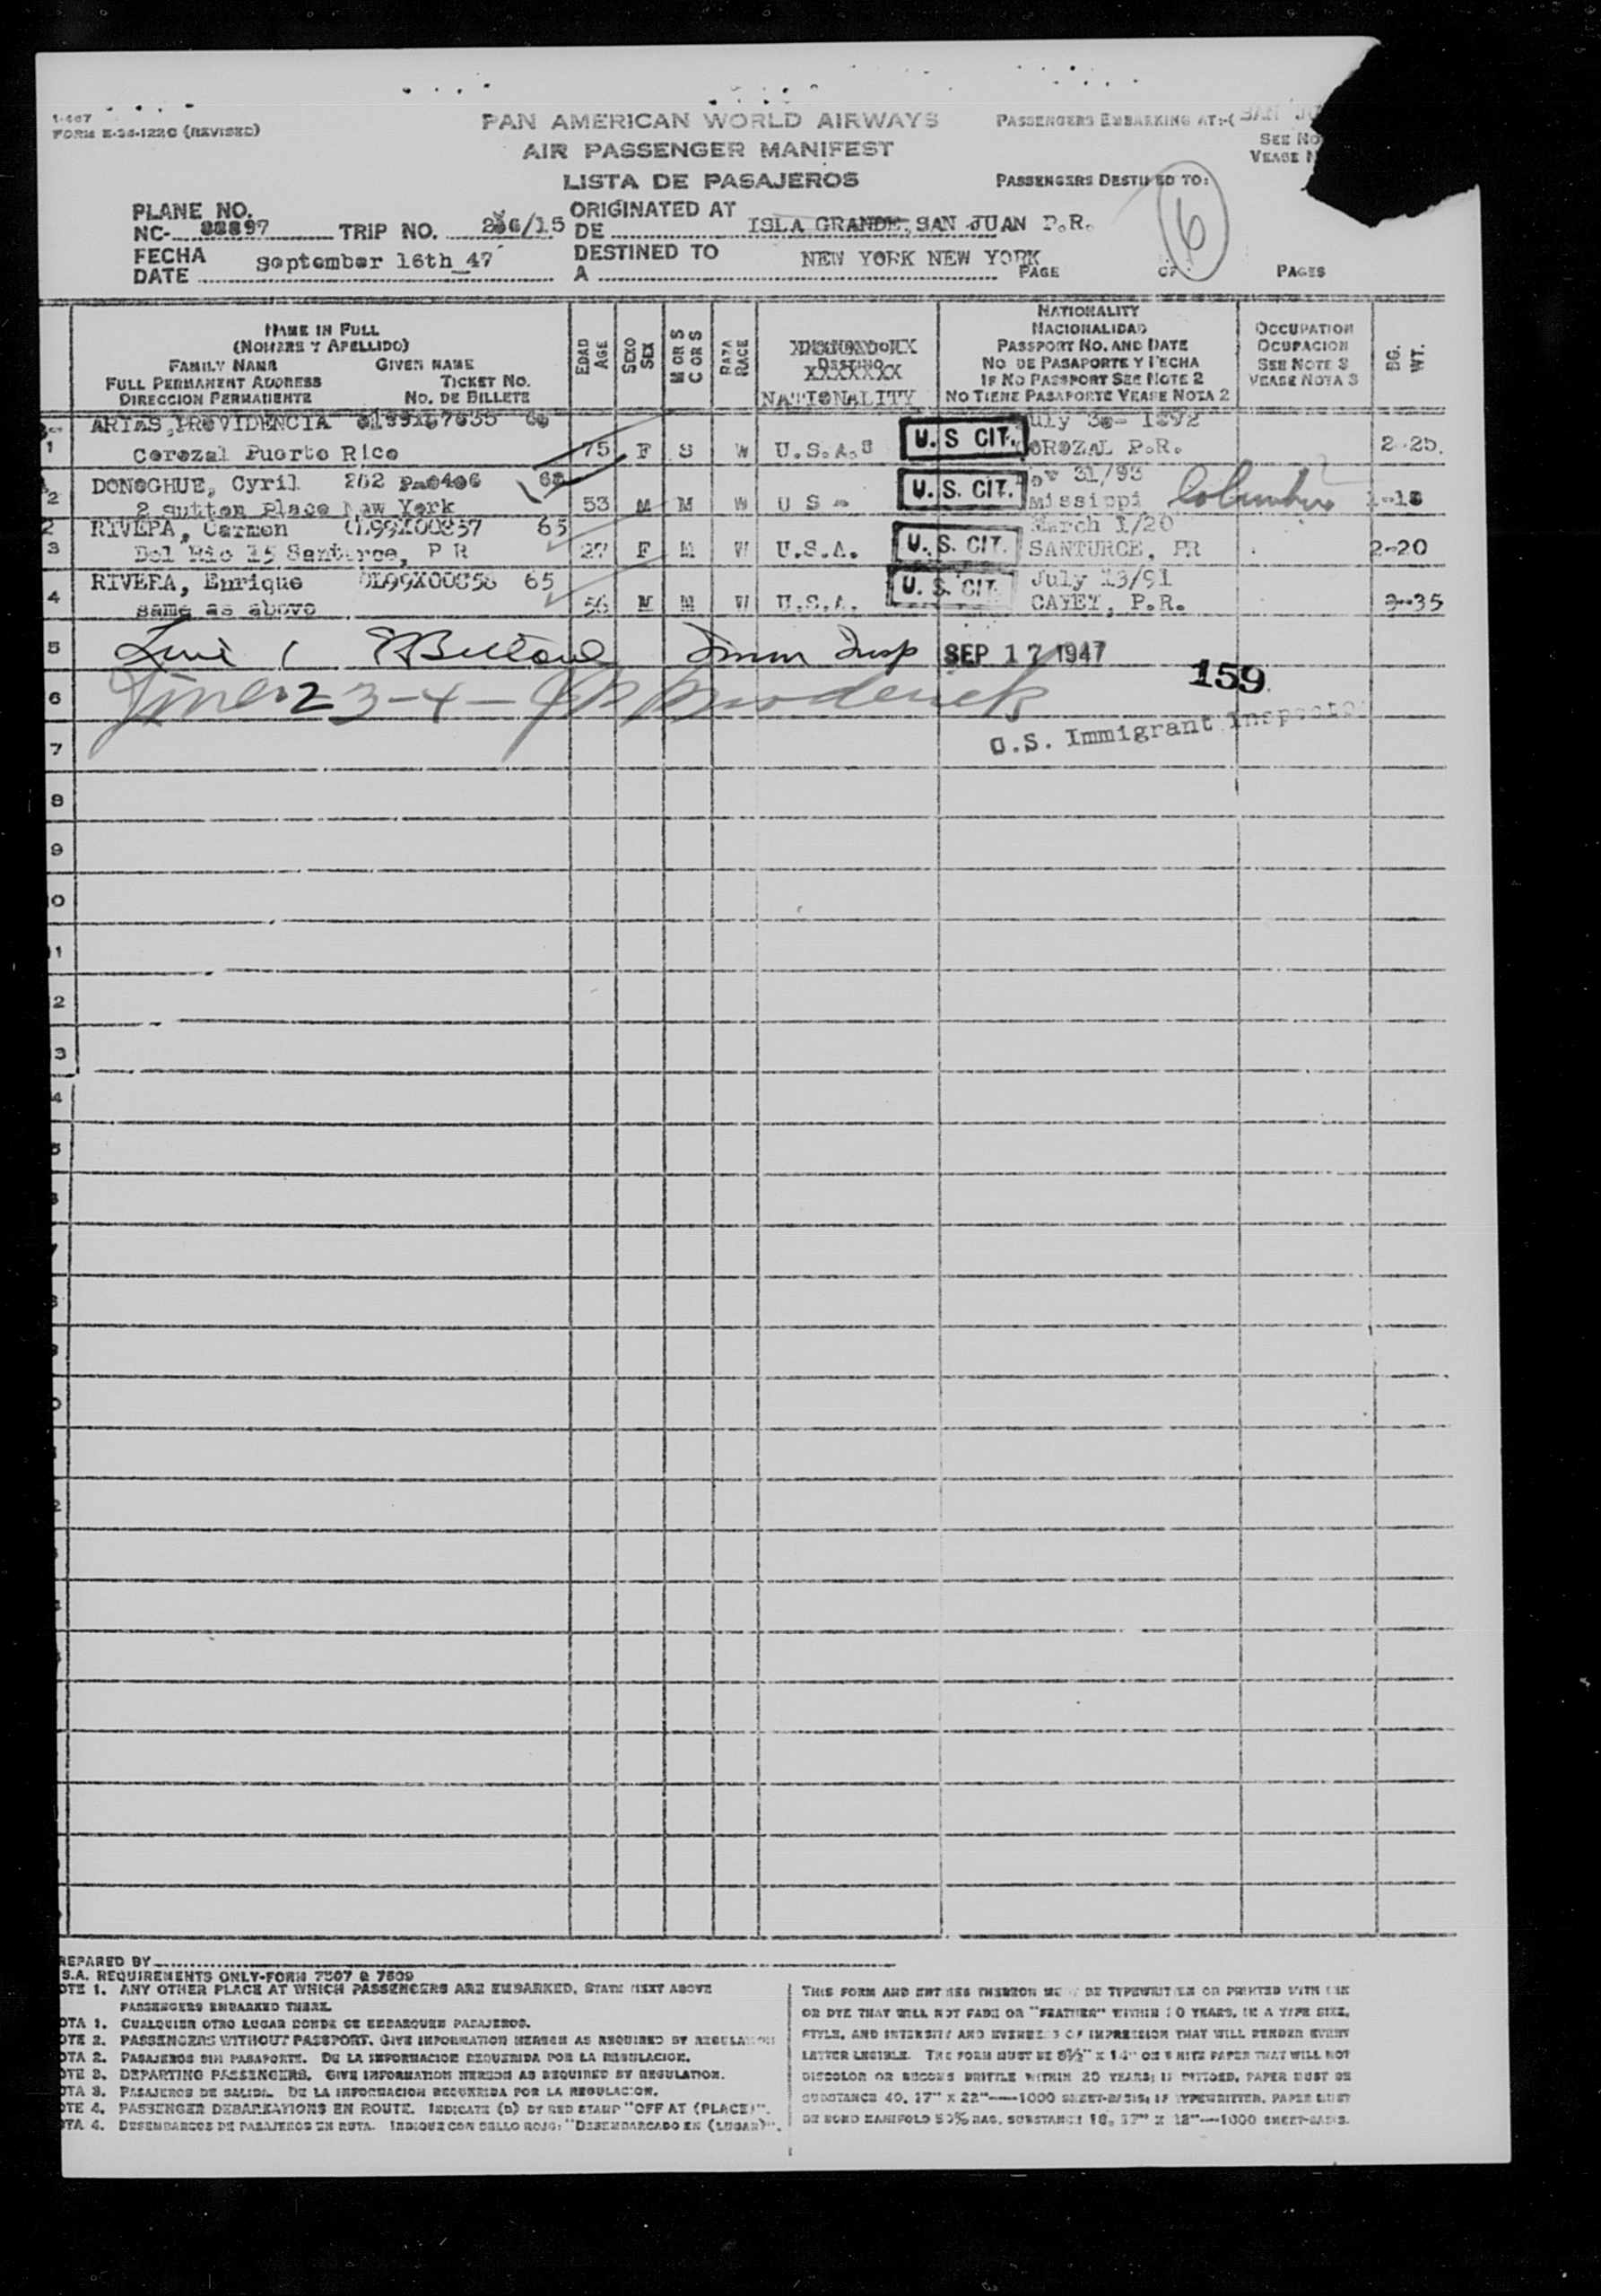 1-447
FORM E-36-122C (REVISED)
PAN AMERICAN WORLD AIRWAYS
AIR PASSENGER MANIFEST
LISTA DE PASAJEROS
PASSENGERS EMBARKING AT:-( SAN JU
SEE NO
VEASE N
PASSENGERS DESTINED TO:
6
PLANE NO.
NC- 88897 TRIP NO. 2 6/15
ORIGINATED AT
DE ISLA GRANDE, SAN JUAN P.R.
FECHA
DATE September 16th 47
DESTINED TO
A NEW YORK NEW YORK
PAGE OF PAGES
NAME IN FULL
(NOMBRE Y APELLIDO)
FAMILY NAME GIVEN NAME
FULL PERMANENT ADDRESS TICKET NO.
DIRECCION PERMANENTE NO. DE BILLETE
EDAD
AGE
SEXO
SEX
M OR S
C OR S
RAZA
RACE
DESTINO
XXXXXXX
NATIONALITY
NATIONALITY
NACIONALIDAD
PASSPORT NO. AND DATE
NO DE PASAPORTE Y FECHA
IF NO PASSPORT SEE NOTE 2
NO TIENE PASAPORTE VEASE NOTA 2
OCCUPATION
OCUPACION
SEE NOTE 3
VEASE NOTA 3
BG.
WT.
ARIAS, PROVIDENCIA
1 Corozal Puerto Rico 75 F S W U.S.A. U. S CIT. OROZAL P.R. 2-25
DONOGHUE, Cyril 262
2 2 Sutton Place New York 53 M M W U S U. S. CIT. 31/93 Missippi Columbus
RIVERA, Carmen 65 March 1/20
3 Del Rio 15 Santurce, P R 27 F M W U.S.A. U. S. CIT. SANTURCE, PR 2-20
RIVERA, Enrique 65 July 13/91
4 same as above 56 M M W U.S.A. U. S. CIT. CAYEY, P.R. 35
5 Line 1 Imm Insp SEP 17 1947
159
6 Lines 2 3-4- Broderick
U.S. Immigrant Inspector
7
8
9
0
1
2
3
4
REPARED BY
S.A. REQUIREMENTS ONLY-FORM 7507 & 7509
OTE 1. ANY OTHER PLACE AT WHICH PASSENGERS ARE EMBARKED. STATE NEXT ABOVE
PASSENGERS EMBARKED THERE.
OTA 1. CUALQUIER OTRO LUGAR DONDE SE EMBARQUEN PASAJEROS.
OTE 2. PASSENGERS WITHOUT PASSPORT. GIVE INFORMATION HEREON AS REQUIRED BY REGULATION
OTA 2. PASAJEROS SIN PASAPORTE. DE LA INFORMACION REQUERIDA POR LA REGULACION.
OTE 3. DEPARTING PASSENGERS. GIVE INFORMATION HEREON AS REQUIRED BY REGULATION.
OTA 3. PASAJEROS DE SALIDA. DE LA INFORMACION REQUERIDA POR LA REGULACION.
OTE 4. PASSENGER DEBARKATIONS EN ROUTE. INDICATE (D) BY RED STAMP "OFF AT (PLACE)".
OTA 4. DESEMBARCOS DE PASAJEROS EN RUTA. INDIQUE CON SELLO ROJO: "DESEMBARCADO EN (LUGAR)".
THIS FORM AND ENTRIES THEREON MUST BE TYPEWRITTEN OR PRINTED WITH INK
OR DYE THAT WILL NOT FADE OR "FEATHER" WITHIN 20 YEARS, IN A TYPE SIZE,
STYLE, AND INTENSITY AND EVENNESS OF IMPRESSION THAT WILL RENDER EVERY
LETTER LEGIBLE. THE FORM MUST BE 8½" X 14" ON WHITE PAPER THAT WILL NOT
DISCOLOR OR BECOME BRITTLE WITHIN 20 YEARS; IF PRINTED, PAPER MUST BE
SUBSTANCE 40, 17" X 22"—1000 SHEET-BASIS; IF TYPEWRITTEN, PAPER MUST
BE BOND MANIFOLD 50% RAG, SUBSTANCE 18, 17" X 22"—1000 SHEET-BASIS.